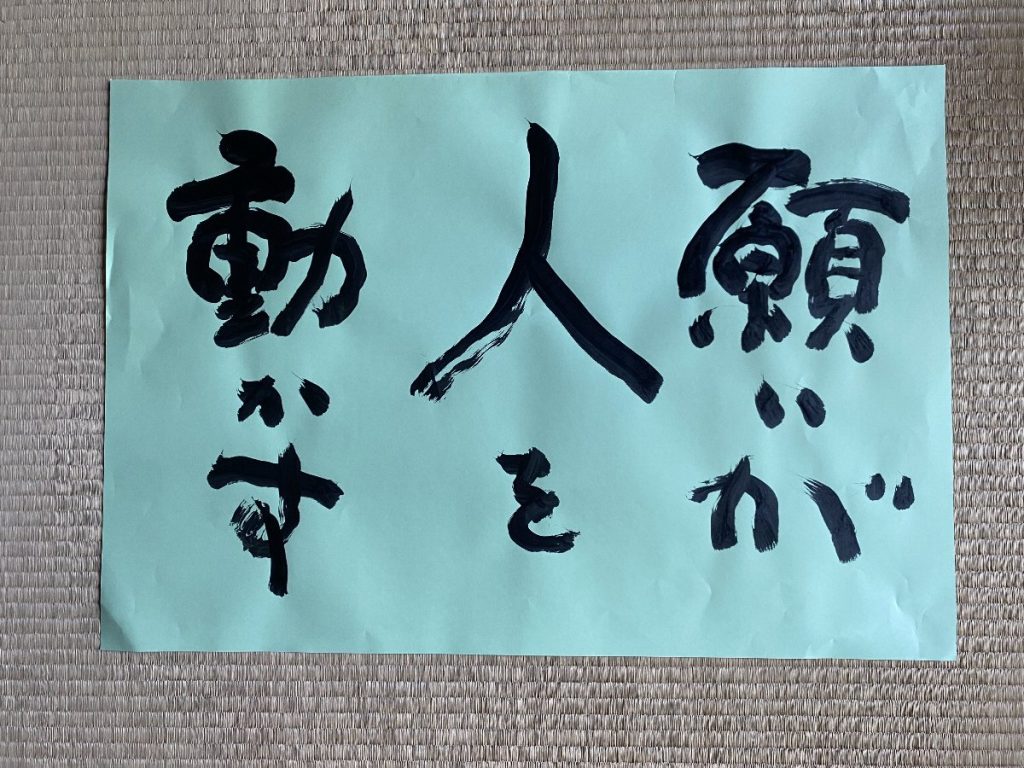 願いが
人を
動かす